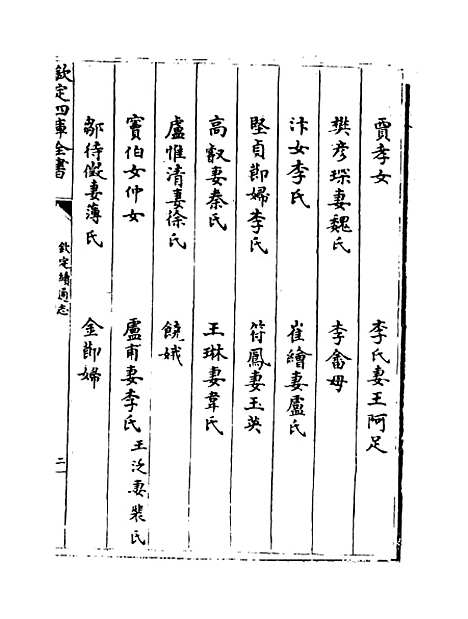 賈孝女 李氏妻王阿足
樊彥琛妻魏氏 李畬母
汴女李氏 崔繪妻盧氏
堅貞節婦李氏 符鳳妻玉英
高叡妻秦氏 王琳妻韋氏
盧惟清妻徐氏 饒娥
竇伯女仲女 盧甫妻李氏 王泛妻裴氏
鄒待徵妻薄氏 金節婦
欽定四庫全書 欽定續通志 二